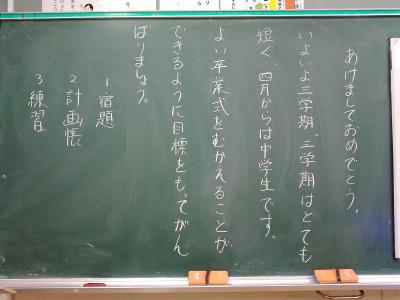 あけましておめでとう。
いよいよ三学期。三学期はとても
短く、四月からは中学生です。
よい卒業式をむかえることが
できるように目標をもってがん
ばりましょう。
1 宿題
2 計画帳
3 練習